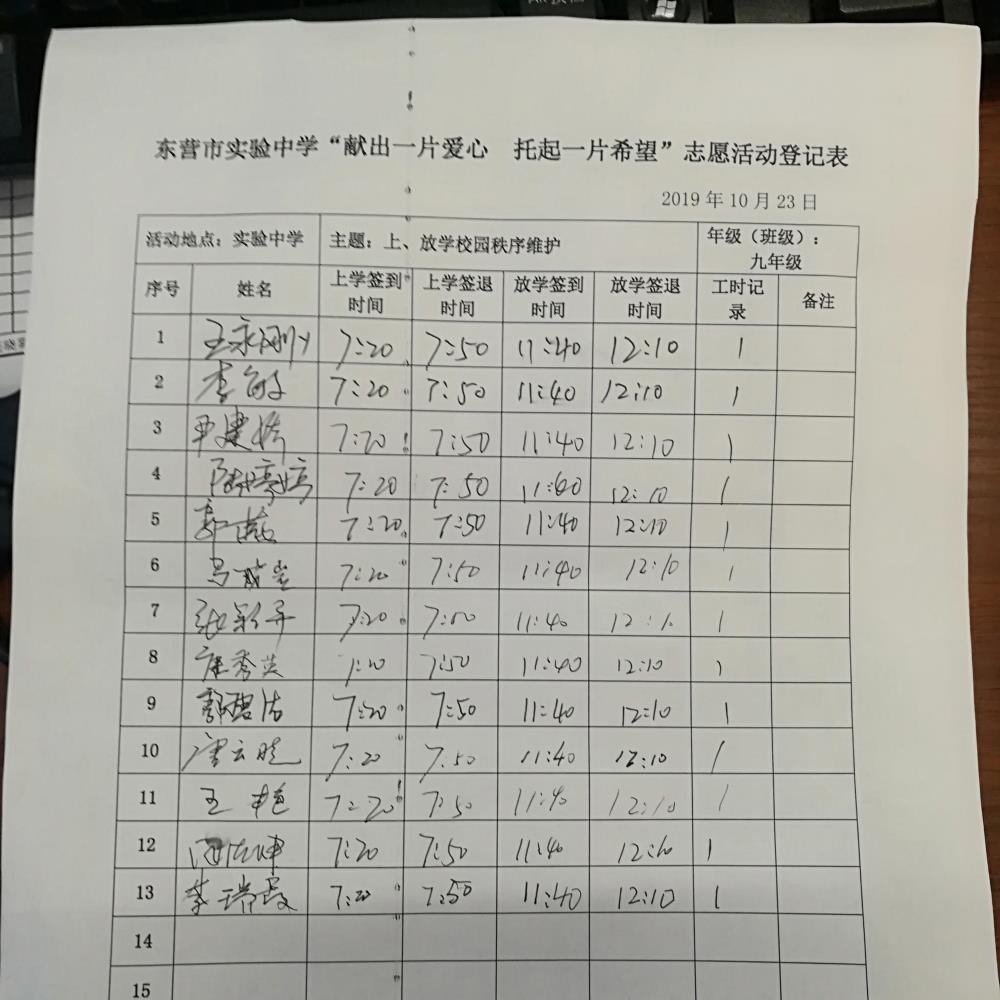 东营市实验中学“献出一片爱心 托起一片希望”志愿活动登记表
2019 年 10 月 23 日
活动地点：实验中学 主题：上、放学校园秩序维护 年级（班级）：九年级
序号 姓名 上学签到时间 上学签退时间 放学签到时间 放学签退时间 工时记录 备注
1 王永刚 7:20 7:50 11:40 12:10 1
2 李敏 7:20 7:50 11:40 12:10 1
3 7:20 7:50 11:40 12:10 1
4 7:20 7:50 11:40 12:10 1
5 7:20 7:50 11:40 12:10 1
6 7:20 7:50 11:40 12:10 1
7 7:20 7:50 11:40 12:10 1
8 崔秀英 7:20 7:50 11:40 12:10 1
9 7:20 7:50 11:40 12:10 1
10 唐云晓 7:20 7:50 11:40 12:10 1
11 王艳 7:20 7:50 11:40 12:10 1
12 7:20 7:50 11:40 12:10 1
13 李瑞霞 7:20 7:50 11:40 12:10 1
14
15